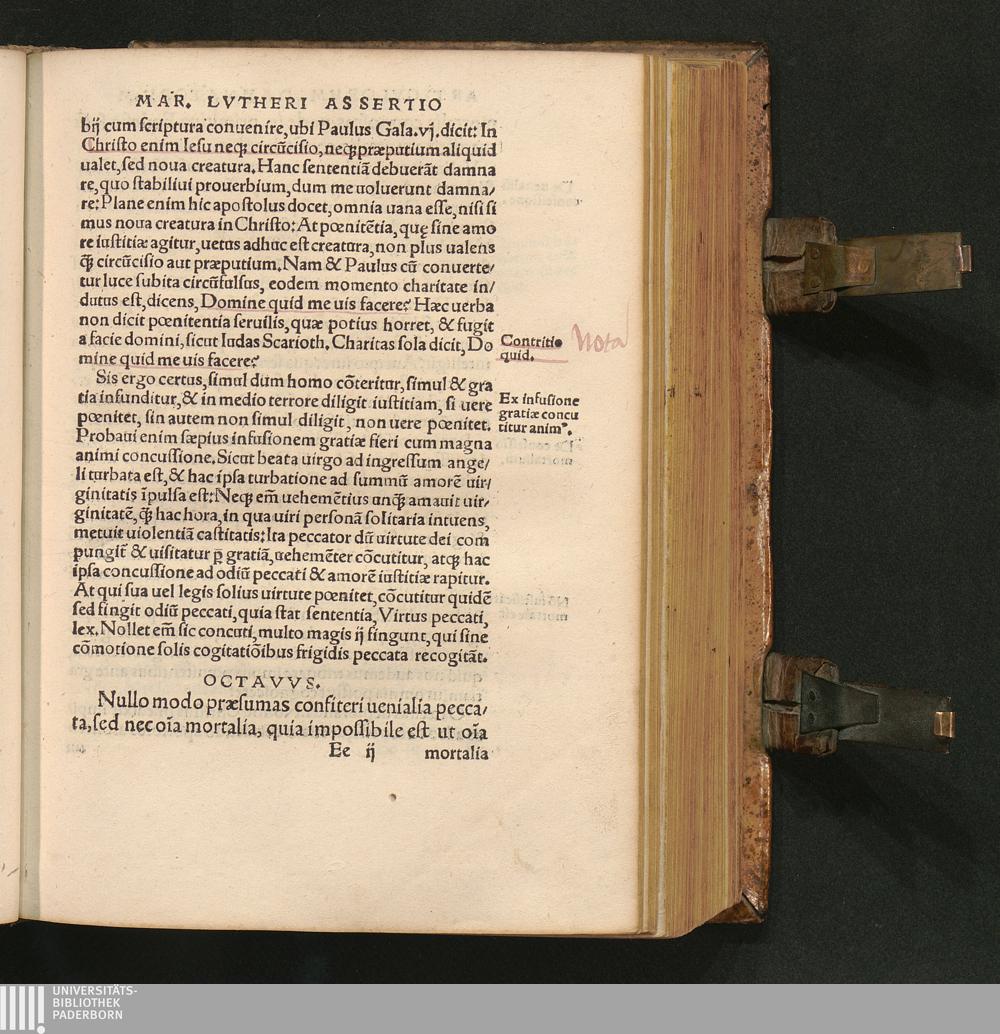 MAR. LVTHERI ASSERTIO
bĳ cum ſcriptura conuenire, ubi Paulus Gala.vj. dicit: In
Chriſto enim Ieſu neqꝫ circũciſio, neqꝫ præputium aliquid
ualet, ſed noua creatura. Hanc ſententiã debuerãt damna
re, quo ſtabiliui prouerbium, dum me uoluerunt damna/
re: Plane enim hic apoſtolus docet, omnia uana eſſe, niſi ſi
mus noua creatura in Chriſto: At pœnitẽtia, quę ſine amo
re iuſtitiæ agitur, uetus adhuc eſt creatura, non plus ualens
ꝙ̃ circũciſio aut præputium. Nam & Paulus cũ conuerte/
tur luce ſubita circũfulſus, eodem momento charitate in/
dutus eſt, dicens, Domine quid me uis facere? Hæc uerba
non dicit pœnitentia ſeruilis, quæ potius horret, & fugit
a facie domini, ſicut Iudas Scarioth. Charitas ſola dicit, Do
mine quid me uis facere?
Contritio
quid.
Nota
Sis ergo certus, ſimul dum homo cõteritur, ſimul & gra
tia infunditur, & in medio terrore diligit iuſtitiam, ſi uere
pœnitet, ſin autem non ſimul diligit, non uere pœnitet.
Probaui enim ſæpius infuſionem gratiæ fieri cum magna
animi concuſſione. Sicut beata uirgo ad ingreſſum ange/
li turbata eſt, & hac ipſa turbatione ad ſummũ amorẽ uir/
ginitatis ĩpulſa eſt: Neqꝫ em̃ uehemẽtius unꝙ̃ amauit uir/
ginitatẽ, ꝙ̃ hac hora, in qua uiri perſonã ſolitaria intuens,
metuit uiolentiã caſtitatis: Ita peccator dũ uirtute dei com
pungit̃ & uiſitatur p̱ gratiã, uehemẽter cõcutitur, atqꝫ hac
ipſa concuſſione ad odiũ peccati & amorẽ iuſtitiæ rapitur.
At qui ſua uel legis ſolius uirtute pœnitet, cõcutitur quidẽ
ſed fingit odiũ peccati, quia ſtat ſententia, Virtus peccati,
lex. Nollet em̃ ſic concuti, multo magis ĳ fingunt, qui ſine
cõmotione ſolis cogitatiõibus frigidis peccata recogitãt.
Ex infuſione
gratiæ concu
titur animꝰ.
OCTAVVS.
Nullo modo præſumas confiteri uenialia pecca/
ta, ſed nec oĩa mortalia, quia impoſſibile eſt ut oĩa
Ee ĳ mortalia
UNIVERSITÄTS-
BIBLIOTHEK
PADERBORN